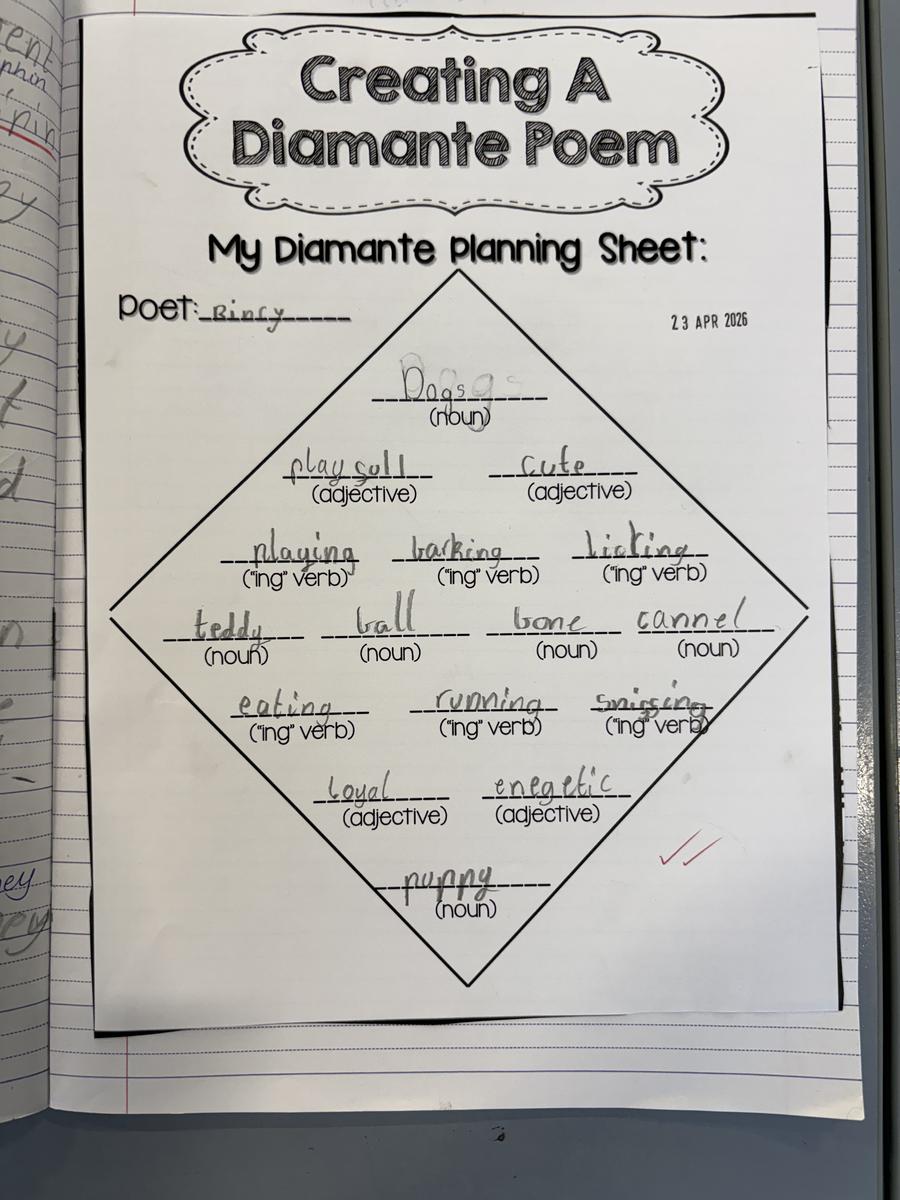 Creating A
Diamante Poem
My Diamante Planning Sheet:
Poet: Bincy
23 APR 2026
Dogs
(noun)
playfull cute
(adjective) (adjective)
playing barking licking
("ing" verb) ("ing" verb) ("ing" verb)
teddy ball bone cannel
(noun) (noun) (noun) (noun)
eating running sniffing
("ing" verb) ("ing" verb) ("ing" verb)
loyal enegetic
(adjective) (adjective)
puppy
(noun)